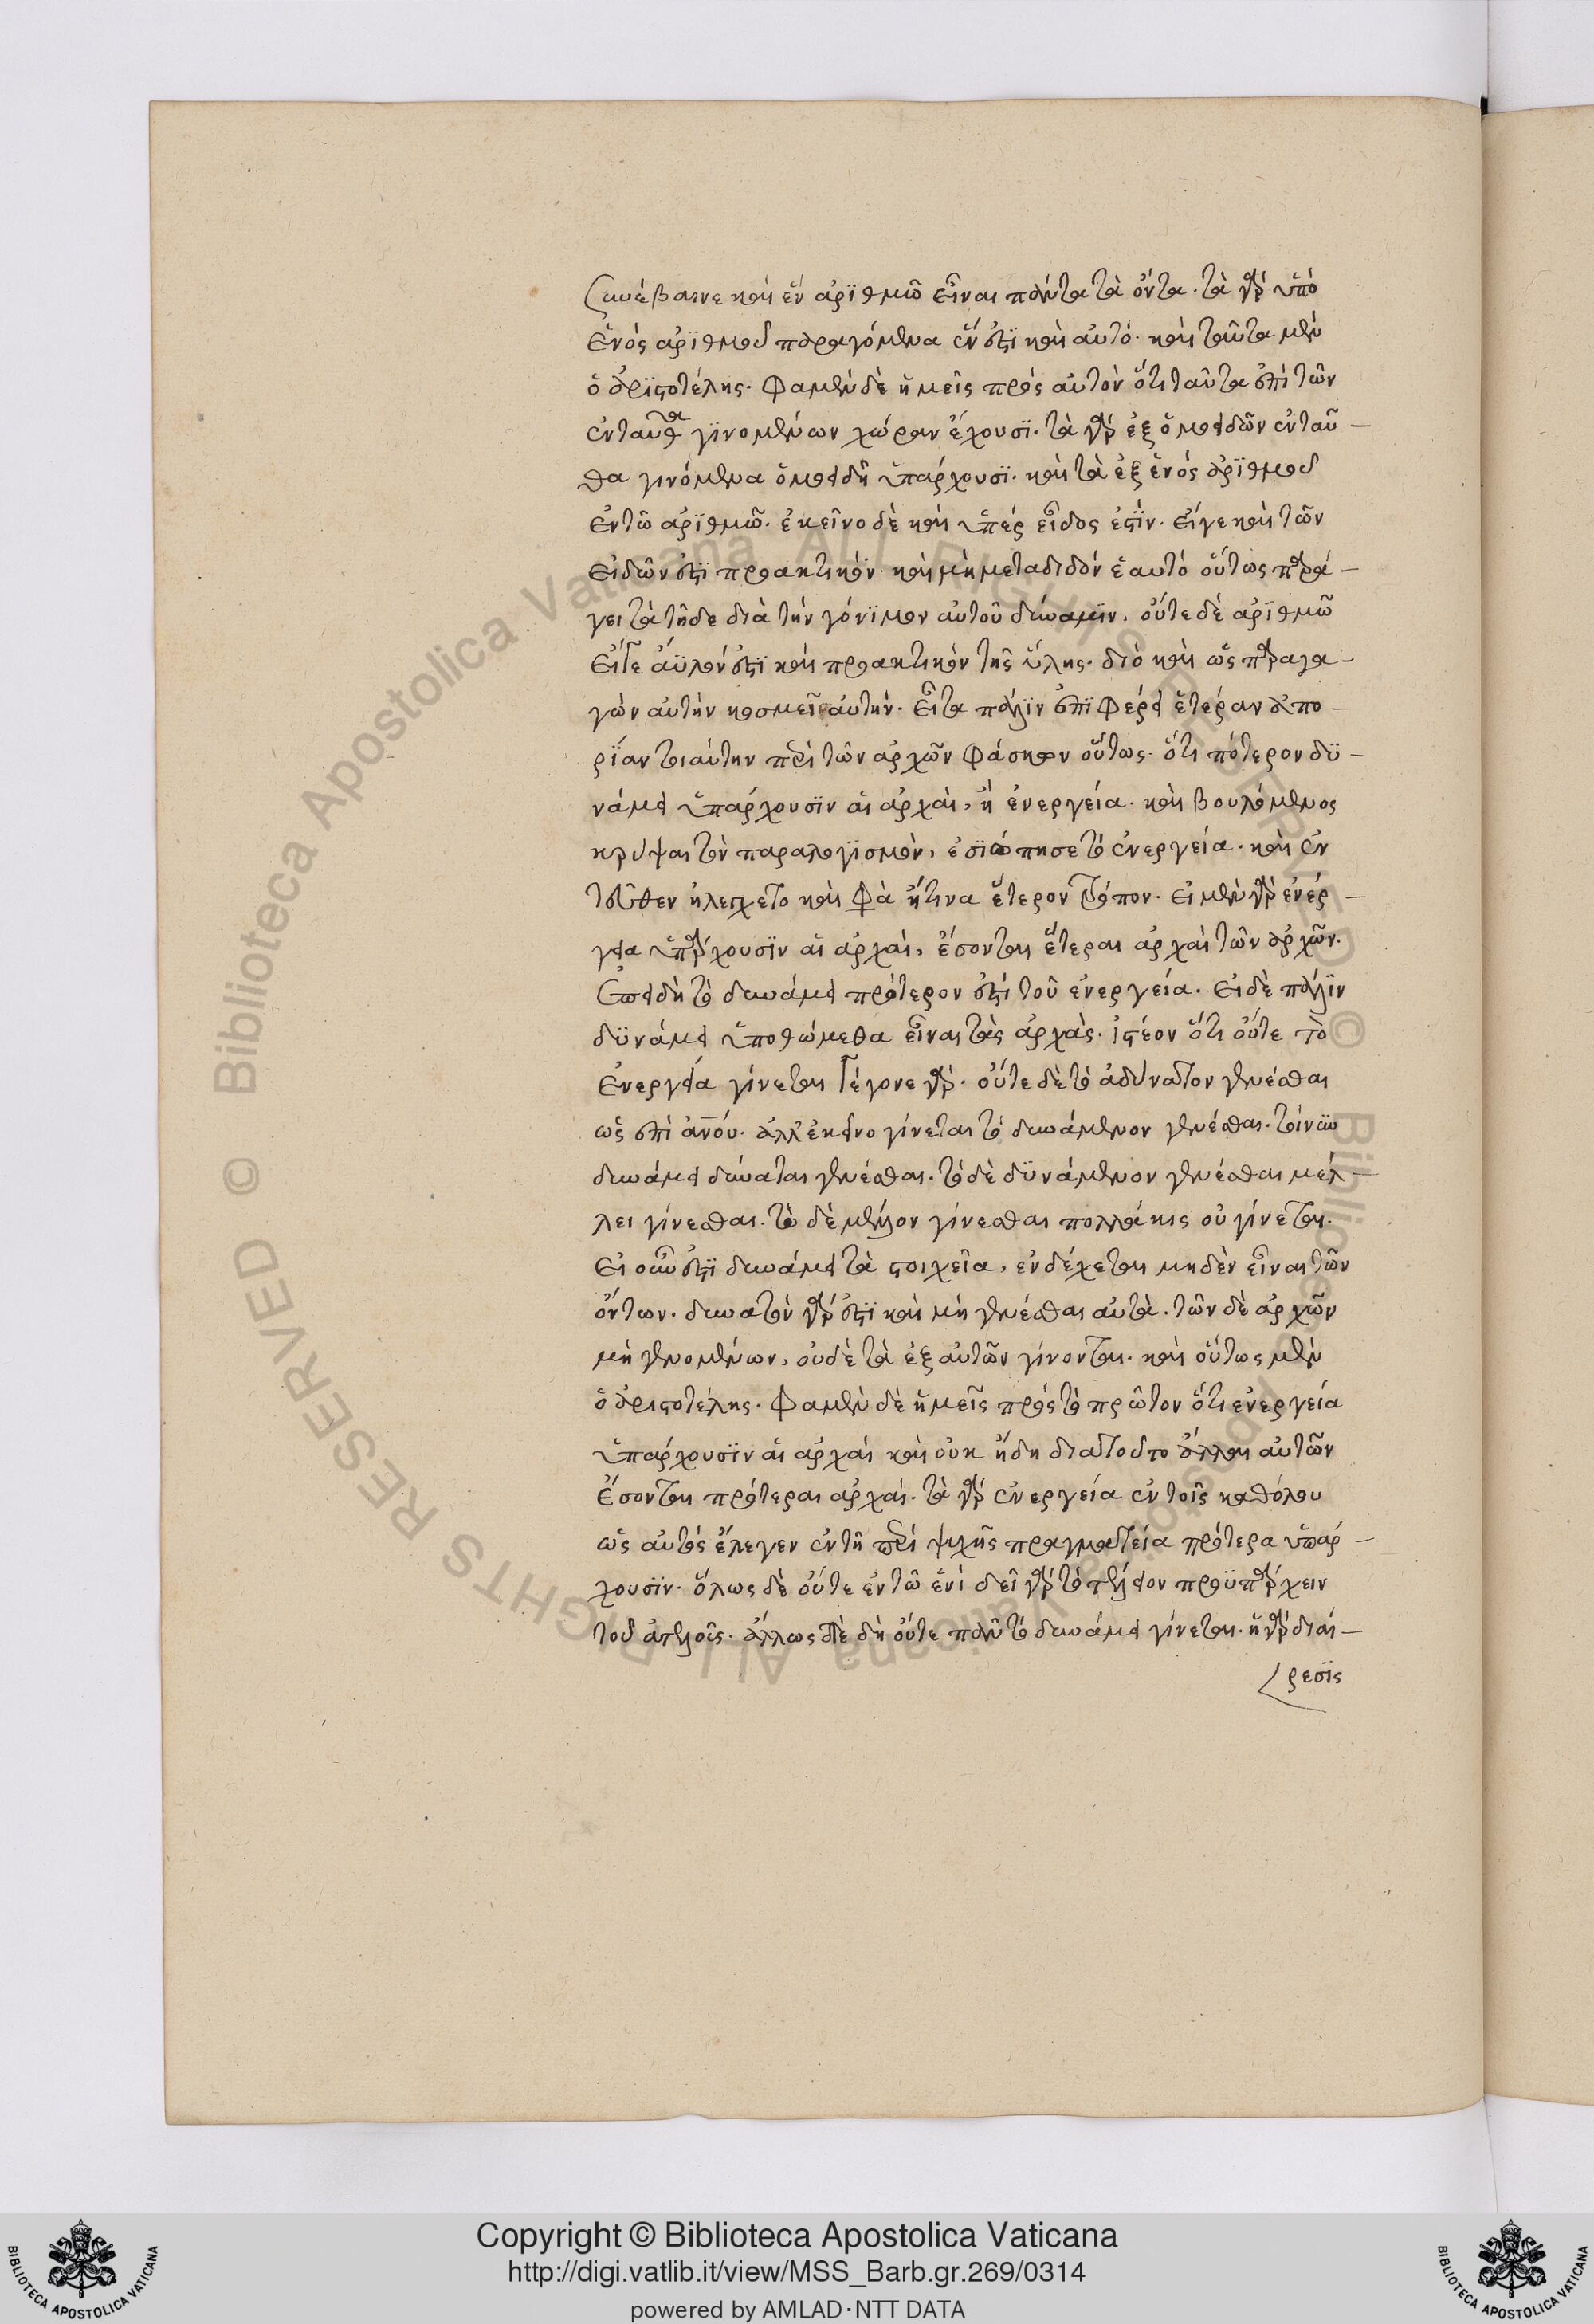 συνέβαινε καὶ ἓν ἀρϊθμῶ εἶναι πάντα τὰ ὄντα. τὰ γὰρ ὑπὸ
ἑνὸς ἀρϊθμοῦ παραγόμενα ἕν ἐστὶ καὶ αὐτό. καὶ ταῦτα μὲν
ὁ ἀρϊστοτέλης. φαμὲν δὲ ἡμεῖς πρὸς αὐτὸν ὅτι ταῦτα ἐπὶ τῶν
ἐνταῦθα γϊνομένων χώραν ἔχουσϊ. τὰ γὰρ ἐξ ὁμοειδῶν ἐνταῦ-
θα γινόμενα ὁμοειδῆ ὑπάρχουσϊ. καὶ τὰ ἐξ ἑνὸς ἀρϊθμοῦ
ἐν τῶ ἀρϊθμῶ. ἐκεῖνο δὲ καὶ ὑπὲρ εἶδος ἐστϊν. εἴγε καὶ τῶν
εἰδῶν ἐστὶ πρακτικὸν καὶ μὴ μεταδιδὸν ἑαυτὸ οὕτως παρά-
γει τὰ τῆδε διὰ τὴν γόνϊμον αὐτοῦ δύναμϊν. οὔτε δὲ ἀρϊθμῶ
εἴτε ἄϋλόν ἐστὶ καὶ πρακτικὸν τῆς ὕλης. διὸ καὶ ὡς παραγα-
γὼν αὐτὴν κοσμεῖ αὐτήν. εἶτα πάλϊν ἐπϊφέρει ἑτέραν ἀπο-
ρϊαν τοιαύτην περὶ τῶν ἀρχῶν φάσκων οὕτως. ὅτι πότερον δϋ-
νάμει ὑπάρχουσϊν αἱ ἀρχαὶ, ἢ ἐνεργεία. καὶ βουλόμενος
κρύψαι τὸν παραλογϊσμὸν, ἐσϊώπησε τὸ ἐνεργεία. καὶ ἐν
τεῦθεν ἠλέγχετο καὶ ἥτινα ἕτερον τρόπον. εἰ μὲν γὰρ ἐνέρ-
γεια ὑπάρχουσϊν αἱ ἀρχαὶ, ἔσονται ἕτεραι ἀρχαὶ τῶν ἀρχῶν.
ἐπειδὴ τὸ δυνάμει πρότερον ἐστὶ τοῦ ἐνεργεία. εἰ δὲ πάλϊν
δϋνάμει ὑποθώμεθα εἶναι τὰς ἀρχὰς. ἰστέον ὅτι οὔτε τὸ
ἐνεργεία γίνεται γέγονε γὰρ. οὔτε δὲ τὸ ἀδύνατον γενέσθαι
ὡς ἐπὶ ἀνου. ἀλλ' ἐκεῖνο γίνεται τὸ δυνάμενον γενέσθαι.
δυνάμει δύναται γενέσθαι. τὸ δὲ δϋνάμενον γενέσθαι μέλ-
λει γίνεσθαι. τὸ δὲ μέλλον γίνεσθαι πολλάκις οὐ γίνεται.
εἰ οὖν ἐστὶ δυνάμει τὰ στοιχεῖα, ἐνδέχεται μηδὲν εἶναι τῶν
ὄντων. δυνατὸν γὰρ ἐστὶ καὶ μὴ γενέσθαι αὐτὰ. τῶν δὲ ἀρχῶν
μὴ γενομένων, οὐδὲ τὰ ἐξ αὐτῶν γίνονται. καὶ οὕτως μὲν
ὁ ἀριστοτέλης. φαμὲν δὲ ἡμεῖς πρὸς τὸ πρῶτον ὅτι ἐνεργεία
ὑπάρχουσϊν αἱ ἀρχαὶ καὶ οὐκ ἤδη διατοῦτο ἄλλαι αὐτῶν
ἔσονται πρότεραι ἀρχαί. τὰ γὰρ ἐνεργεία ἐν τοῖς καθόλου
ὡς αὐτὸς ἔλεγεν ἐν τῆ περὶ ψυχῆς πραγματεία πρότερα ὑπάρ-
χουσϊν. ὅλως δὲ οὔτε ἐν τῶ ἑνὶ δεῖ γὰρ τὸ τέλειον προϋπάρχειν
τοῦ ἀτελοῦς. ἄλλως δὲ δὴ οὔτε πᾶν τὸ δυνάμει γίνεται. ἡ γὰρ διαί-
ρεσϊς
Copyright © Biblioteca Apostolica Vaticana
http://digi.vatlib.it/view/MSS_Barb.gr.269/0314
powered by AMLAD·NTT DATA